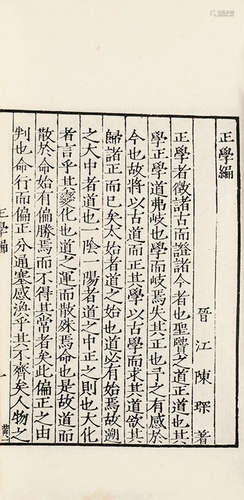 正學編
晉江陳琛著
正學者徵諸古而證諸今者也聖賢之道正道也其
學正學道弗岐也學而岐焉失其正也予之有感於
今也故將以古道而正其學以古學而求其道欲其
歸諸正而已矣太始者道之始也道必有始焉故溯
之大中者道也一陰一陽者道之中正之則也大化
者言乎其變化也道之運而散殊焉命也是故道而
散於命始有偏勝焉而不得其常者矣此偏正之由
判也命行而偏正分通塞感渙乎其不齊矣人物之
正學編
一